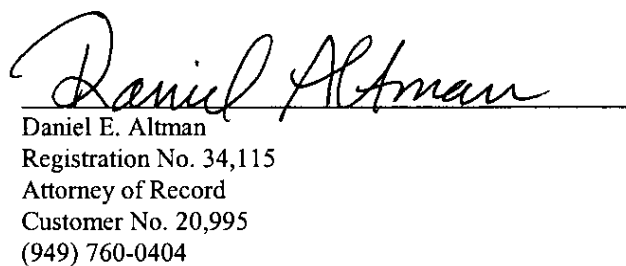 Daniel Altman
Daniel E. Altman
Registration No. 34,115
Attorney of Record
Customer No. 20,995
(949) 760-0404